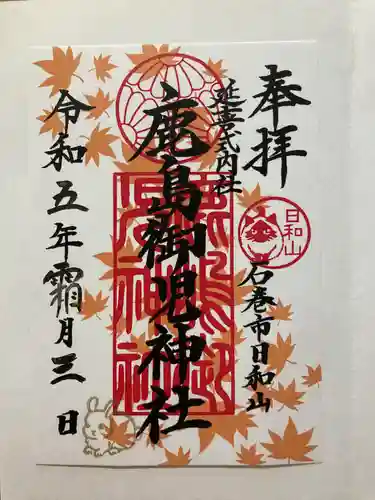 奉拝
延喜式内社
石巻市日和山
日和山
鹿島御児神社
令和五年霜月三日